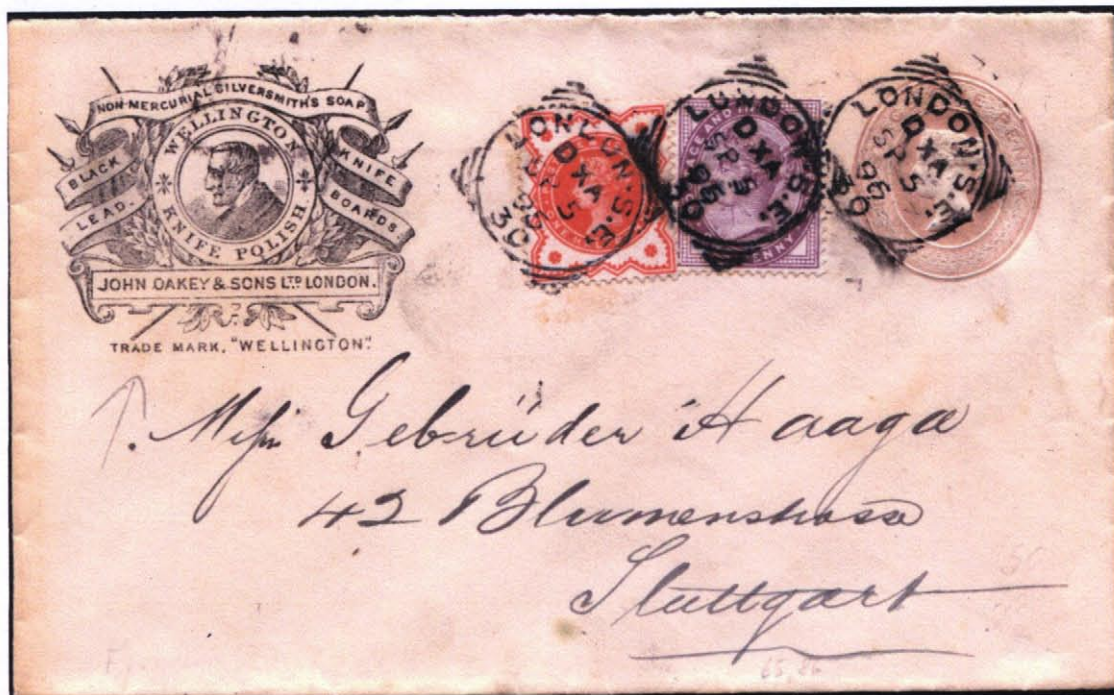 NON-MERCURIAL SILVERSMITH'S SOAP
WELLINGTON
KNIFE POLISH
BLACK
LEAD.
KNIFE
BOARDS
JOHN OAKEY & SONS LTD LONDON.
TRADE MARK, "WELLINGTON".
LONDON.S.E.
D XA
SP 5
95
30
LONDON.S.E.
D XA
SP 5
95
30
PENNY
LONDON.S.E.
D XA
SP 5
95
30
Messrs Gebrüder Haaga
42 Blumenstrasse
Stuttgart